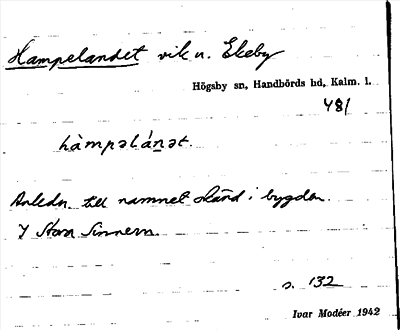 Hampelandet vik u. Ekeby
Högsby sn, Handbörds hd, Kalm. l.
481
hàmpəlánət.
Anledn. till namnet okänd i bygden.
I Stora Sinnern.
s. 132
Ivar Modéer 1942